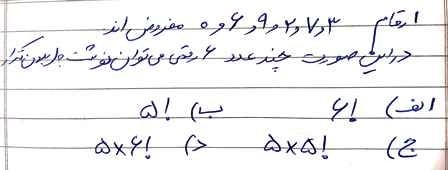 ارقام ۳ و ۷ و ۲ و ۹ و ۶ و ۵ مفروض اند
در این صورت چند عدد ۶ رقمی می توان نوشت بدون تکرار
الف) ۶! ب) ۵!
ج) ۵×۵! د) ۵×۶!